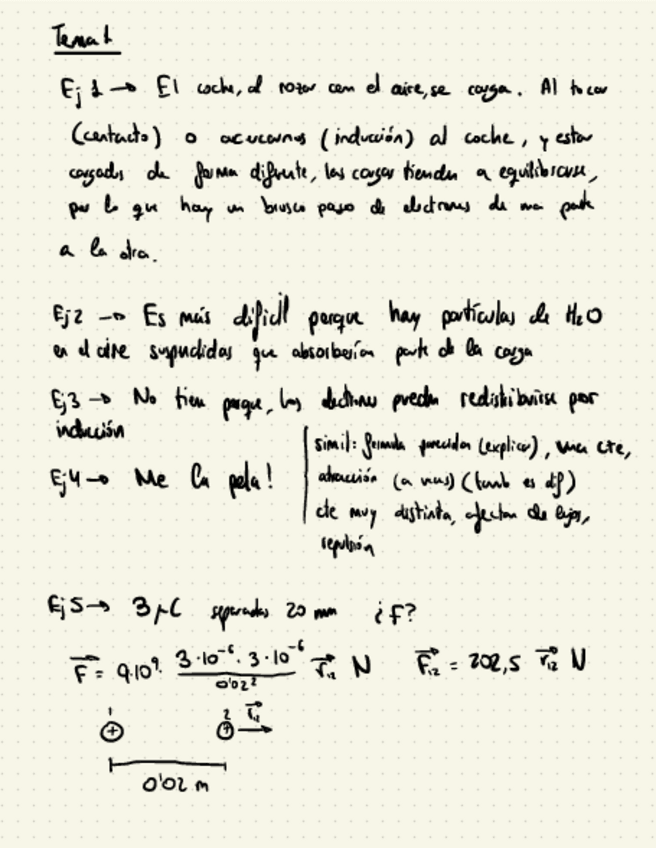 Tema 1
Ej 1 → El coche, al rozar con el aire, se carga. Al tocar
(contacto) o acercarnos (inducción) al coche, y estar
cargados de forma difrente, las cargas tienden a equilibrarse,
por lo que hay un brusco paso de electrones de una parte
a la otra.
Ej 2 → Es más difícil porque hay partículas de H₂O
en el aire suspendidas que absorberían parte de la carga
Ej 3 → No tien porque, los electrones pueden redistribuirse por
inducción
Ej 4 → Me la pela!
simil: formula parecida (explicar), una cte,
atracción (a veces) (tamb es dif)
cte muy distinta, afectan de lejos,
repulsión
Ej 5 → 3 μC separadas 20 mm ¿F?
F⃗ = 9·10⁹· 3·10⁻⁶ · 3·10⁻⁶ / 0'02² r⃗₁₂ N F⃗₁₂ = 202,5 r⃗₁₂ N
1 2 r⃗₁₂
+ +
0'02 m